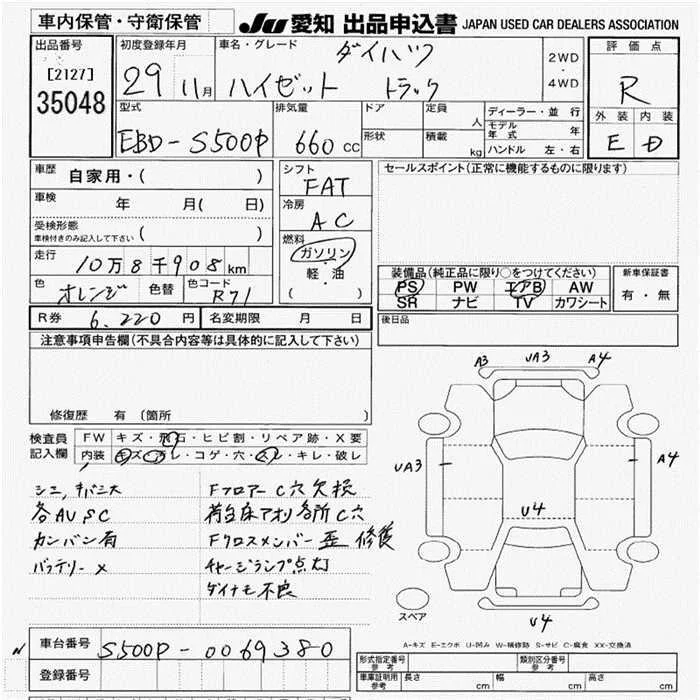 車内保管・守衛保管 JU 愛知 出品申込書 JAPAN USED CAR DEALERS ASSOCIATION
出品番号 初度登録年月 車名・グレード ダイハツ 2WD・4WD 評価点
[2127]
35048 29 11月 ハイゼット トラック R
型式 排気量 ドア 定員 人 ディーラー・並 行 外装 内装
EBD-S500P 660 CC 形状 積載 kg モデル年式 年 E D
ハンドル 左・右
車歴 自家用・( ) シフト FAT セールスポイント(正常に機能するものに限ります)
車検 年 月( 日) 冷房 AC
受検形態 車検付きのみ記入して下さい ( )
燃料 ガソリン
軽・油
( )
走行 10万8千908km 装備品(純正品に限り○をつけてください) 新車保証書
色 オレンジ 色替 色コード R71 PS PW エアB AW 有・無
SR ナビ TV カワシート
R券 6,220円 名変期限 月 日 後日品
注意事項申告欄(不具合内容等は具体的に記入して下さい)
修復歴 有 (箇所 )
A3 UA3 A4
検査員記入欄 FW キズ・飛石・ヒビ割・リペア跡・X要
内装 キズ・汚レ・コゲ・穴・スレ・キレ・破レ
UA3 A4
シミ,キバミ大 Fフロアー C穴欠損
各AU SC 荷台床アオリ各所C穴
カンバン有 Fクロスメンバー歪 修復
バッテリー× チャージランプ点灯
ダイナモ不良
U4
スペア U4
A-キズ E-エクボ U-凹み W-補修跡 S-サビ C-腐食 XX-交換済
N 車台番号 S500P-0069380
登録番号
形式指定番号 参考 類別区分番号 参考
車庫証明用 参考 長さ cm 幅 cm 高さ cm